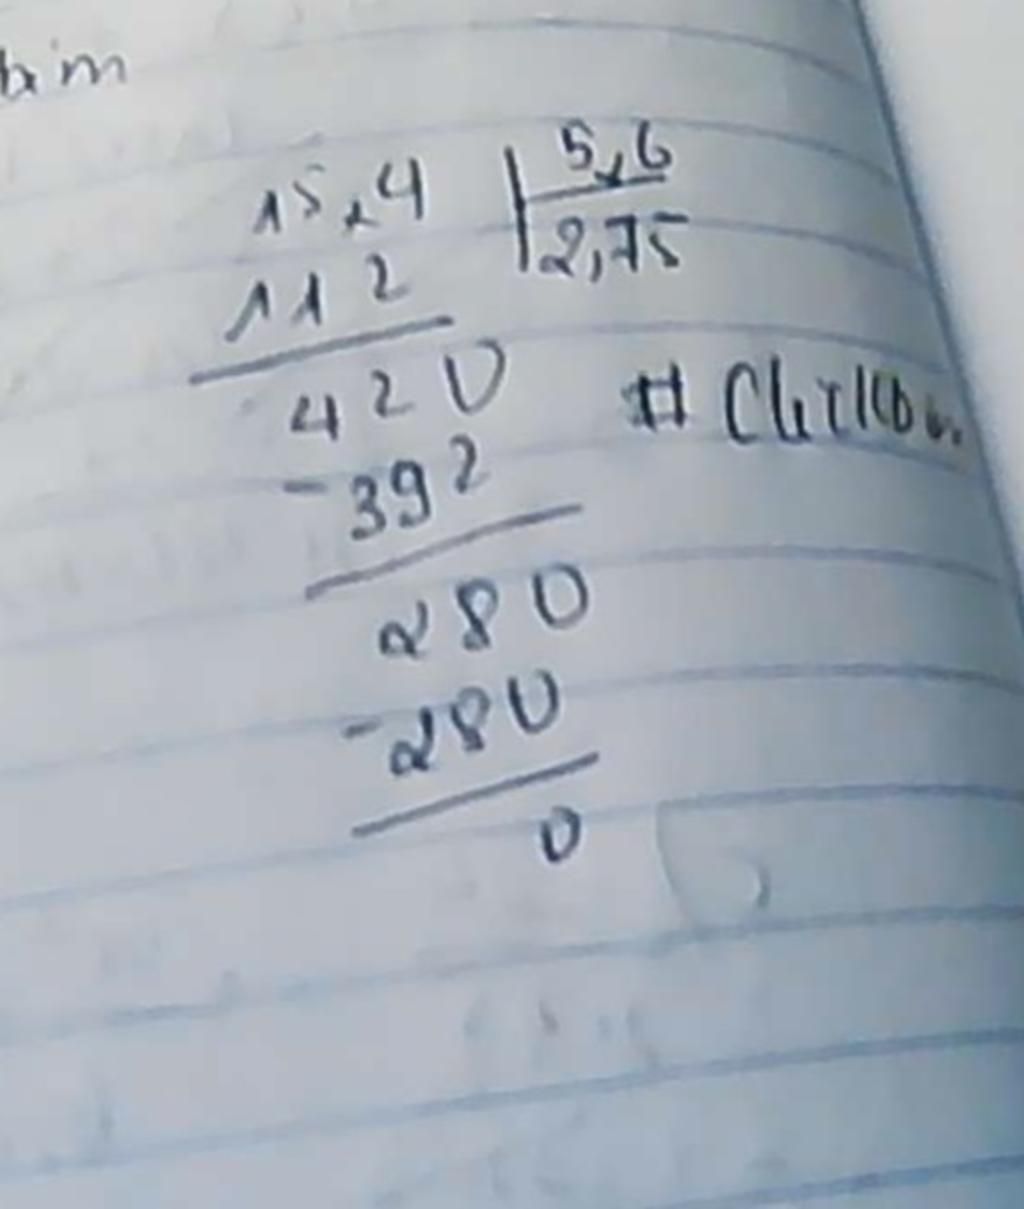 15,4 | 5,6
112 2,75
420
-392
280
-280
0